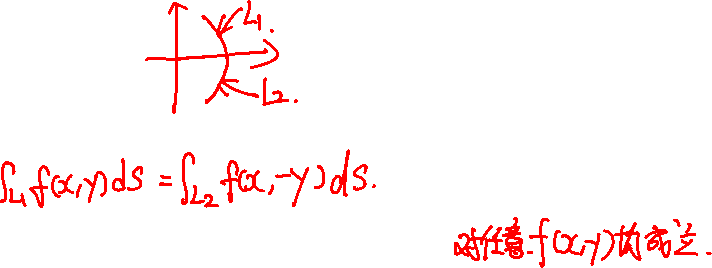 L₁.
L₂.
∫L₁ f(x,y)ds = ∫L₂ f(x,-y)ds.
对任意f(x,y)均成立.